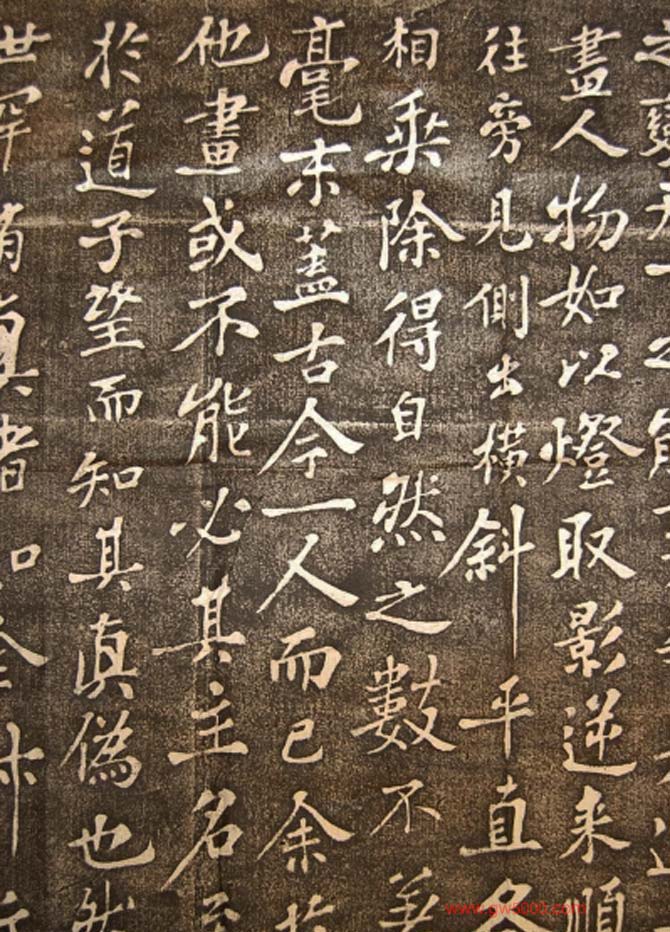 之變天下之能
畫人物如以燈取影逆来順
往旁見側出橫斜平直各
相乘除得自然之數不差
毫末蓋古今一人而已余於
他畫或不能必其主名至
於道子望而知其真偽也然
世罕有真者如全叔所
www.gw5000.com